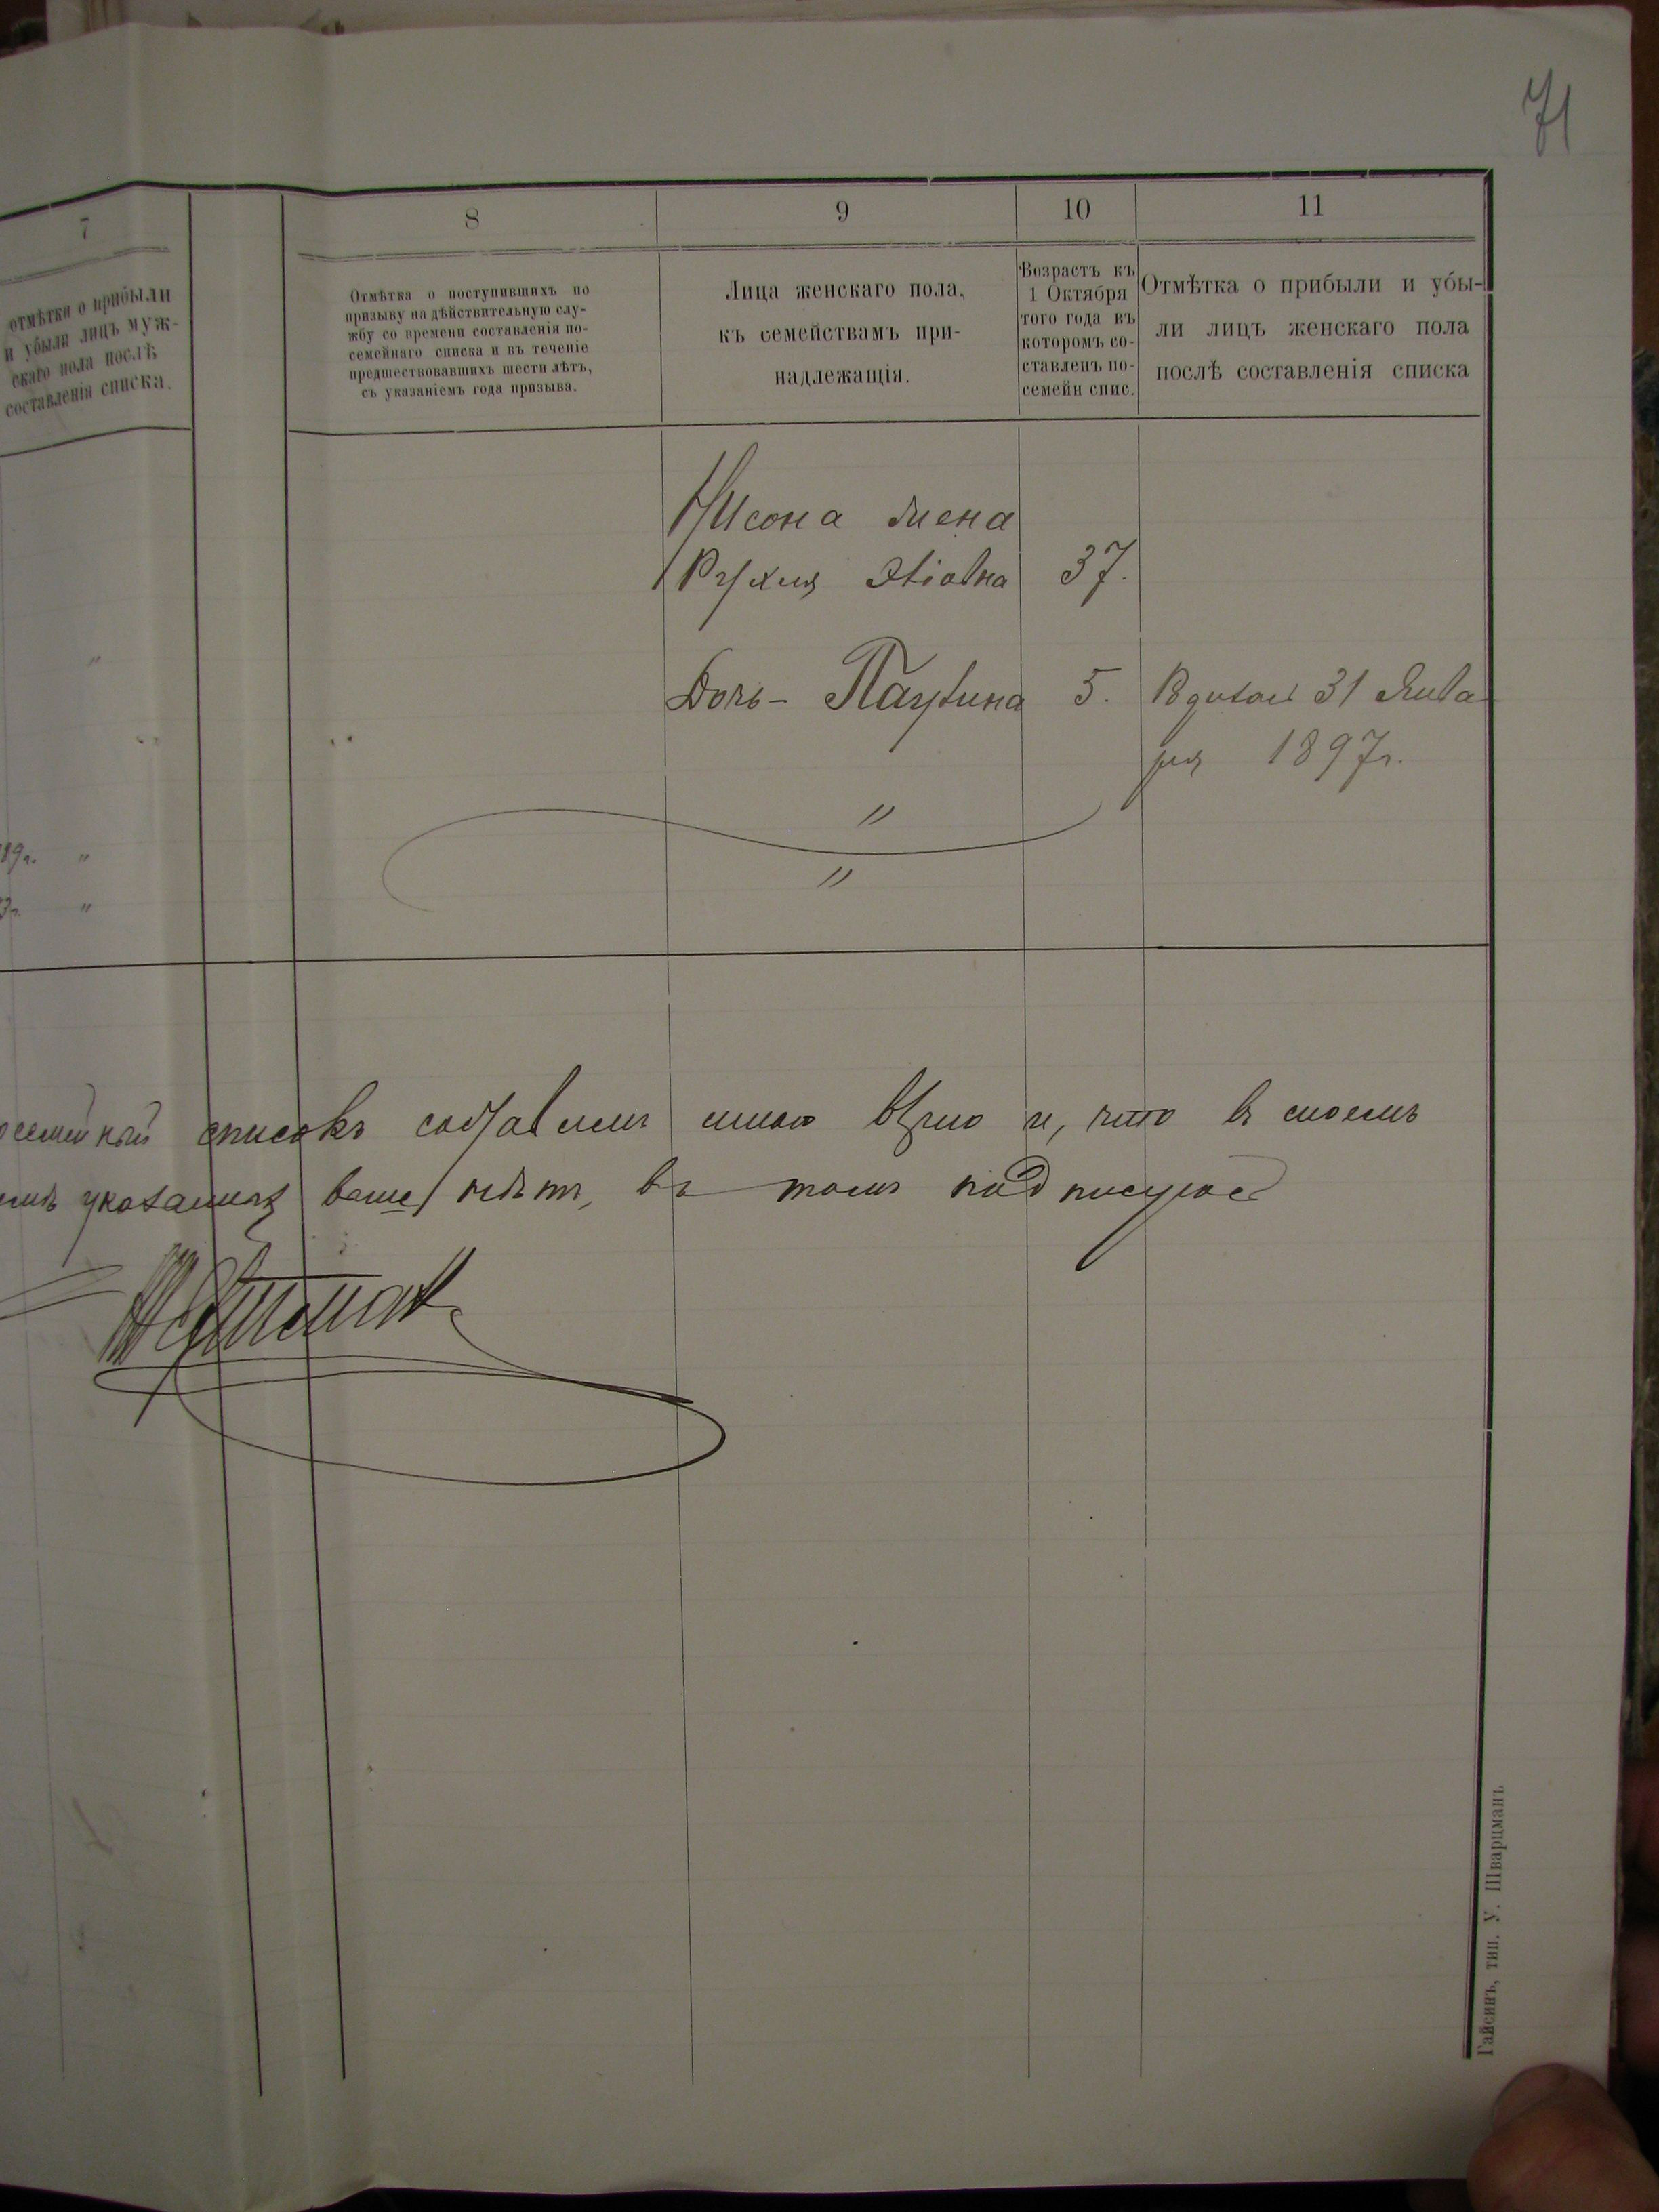 71
7
8
9
10
11
отмѣтки о прибыли
и убыли лицъ муж-
скаго пола послѣ
составленія списка.
Отмѣтка о поступившихъ по
призыву на дѣйствительную слу-
жбу со времени составленія по-
семейнаго списка и въ теченіе
предшествовавшихъ шести лѣтъ,
съ указаніемъ года призыва.
Лица женскаго пола,
къ семействамъ при-
надлежащія.
Возрастъ къ
1 Октября
того года въ
которомъ со-
ставленъ по-
семейн спис.
Отмѣтка о прибыли и убы-
ли лицъ женскаго пола
послѣ составленія списка
Нисона жена
Рухля 37.
Дочь – Паулина 5. 31 Янва-
ря 1897г.
"
"
списокъ составленъ мною вѣрно и, что въ моемъ
указанныхъ выше нѣтъ, въ томъ подписуюсь
Гайсинъ, тип. У. Шварцманъ